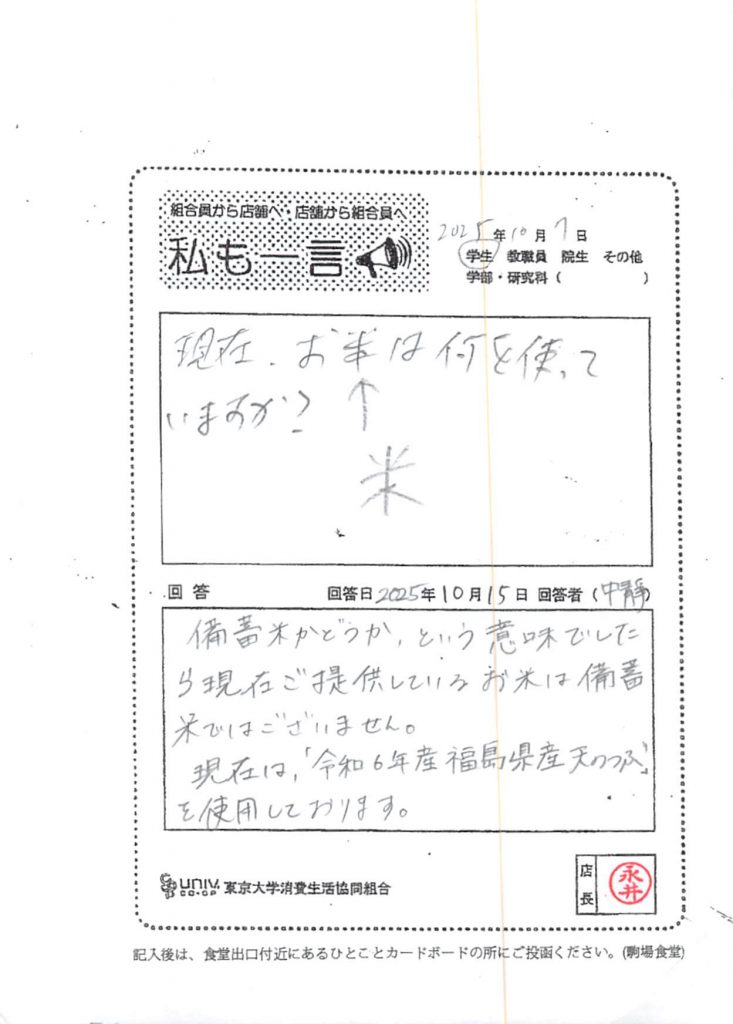 組合員から店舗へ・店舗から組合員へ
私も一言
2025年10月7日
学生 教職員 院生 その他
学部・研究科( )
現在、お半は何を使って
いますか?
↑
米
回答
回答日2025年10月15日 回答者(中静)
備蓄米かどうか、という意味でした
ら現在ご提供しているお米は備蓄
米ではございません。
現在は、「令和6年産福島県産天のつぶ」
を使用しております。
UNIV.
CO-OP
東京大学消費生活協同組合
店長
永井
記入後は、食堂出口付近にあるひとことカードボードの所にご投函ください。(駒場食堂)